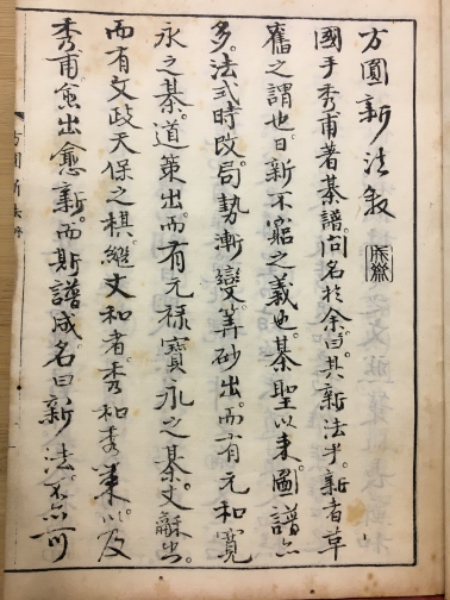 方圓新法叙
國手秀甫著棊譜。問名於余。曰其新法乎。新者革
舊之謂也。日新不窮之義也。棊聖以来。圖譜亦
多。法式時改。局勢漸變。筭砂出。而有元和寛
永之棊。道策出。而有元禄寶永之棊。丈龢出。
而有文政天保之棋。繼丈和者。秀和秀策以及
秀甫。愈出愈新。而斯譜成。名曰新法。不亦可
方圓新法序